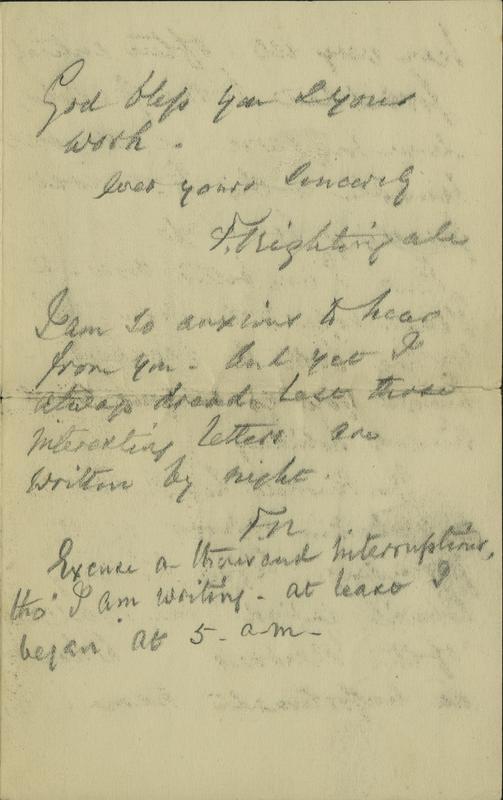 God bless you & your
work.
Ever yours sincerely
F. Nightingale
I am so anxious to hear
from you. And yet I
always dread lest those
interesting letters are
written by night.
F.N
Excuse a thousand interruptions,
tho' I am writing - at least I
began at 5 - a.m -